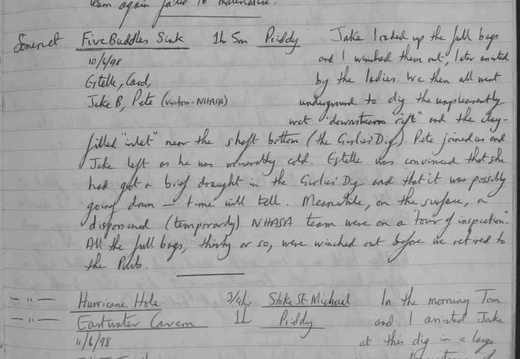 team again failed to materialise.
Somerset Five Buddles Sink 1h 5m Priddy Jake loaded up the full bags
10/6/98 and I winched them out, later assisted
Estelle, Carol, by the ladies. We then all went
Jake B, Pete (visitor - NHASA) underground to dig the unpleasantly
wet "downstream rift" and the clay-
filled "inlet" near the shaft bottom (the Girlies' Dig). Pete joined us and
Jake left as he was miserably cold. Estelle was convinced that she
had got a brief draught in the Girlies' Dig and that it was possibly
going down — time will tell. Meanwhile, on the surface, a
dispossessed (temporarily) NHASA team were on a "tour of inspection".
All the full bags, thirty or so, were winched out before we retired to
the Pub.
— " — Hurricane Hole 3/4h Stoke St Michael In the morning Tom
— " — Eastwater Cavern 1h Priddy and I assisted Jake
11/6/98 at this dig in a large